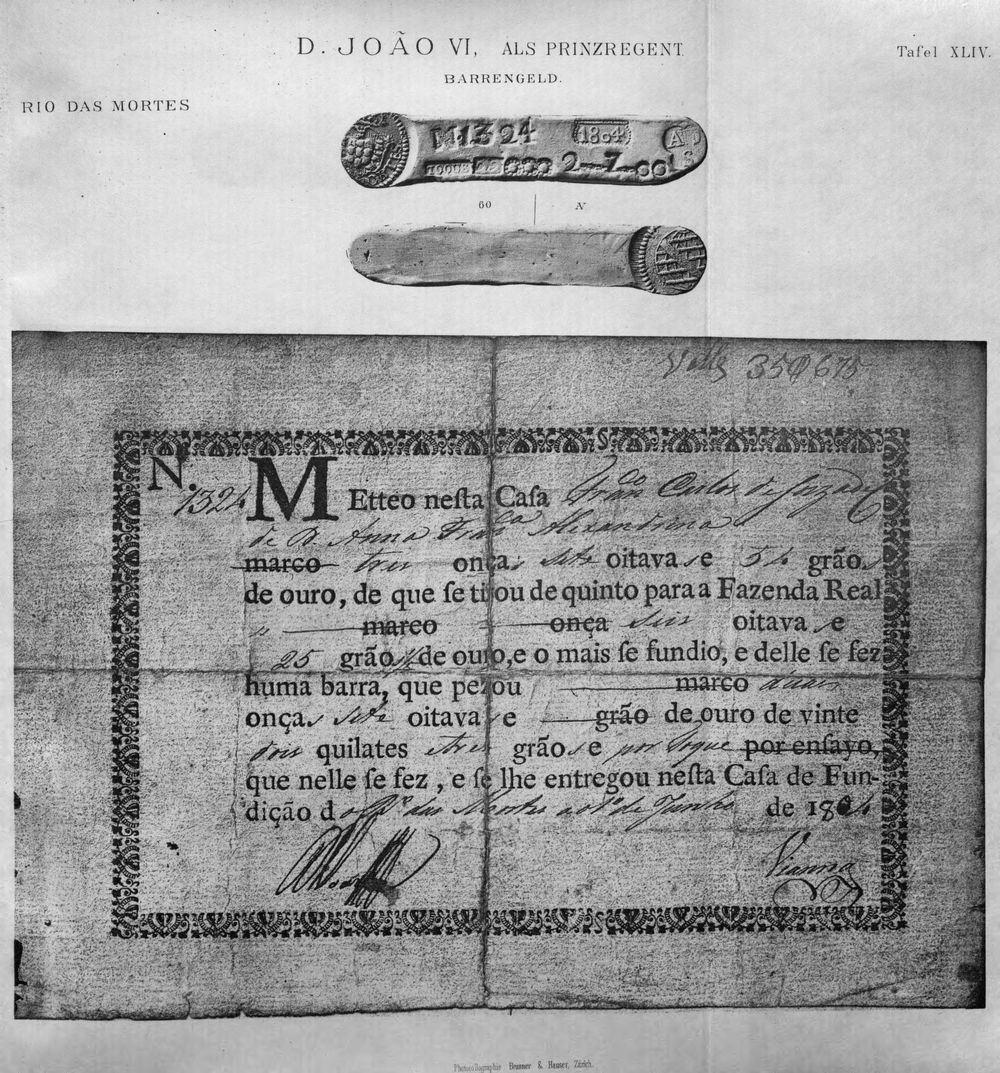 D. JOÃO VI, ALS PRINZREGENT.
Tafel XLIV.
BARRENGELD.
RIO DAS MORTES
N.1324 1804 A
TOQUE 2 7 00
60 A'
35$675
N. 1324 METteo neſta Caſa Franco Carlos de Souza
de D. Anna Franca Alexandrina
marco tres onças sete oitavas e 54 grãos
de ouro, de que ſe tirou de quinto para a Fazenda Real
marco onça seis oitavas e
25 grãos de ouro, e o mais ſe fundio, e delle ſe fez
huma barra, que pezou marco duas
onças sete oitavas e grão de ouro de vinte
dous quilates e tres grãos e por toque por enſayo,
que nelle ſe fez, e ſe lhe entregou neſta Caſa de Fun-
dição do das Mortes de Junho de 1804
Vianna
Photocollographie Brunner & Hauser, Zürich.